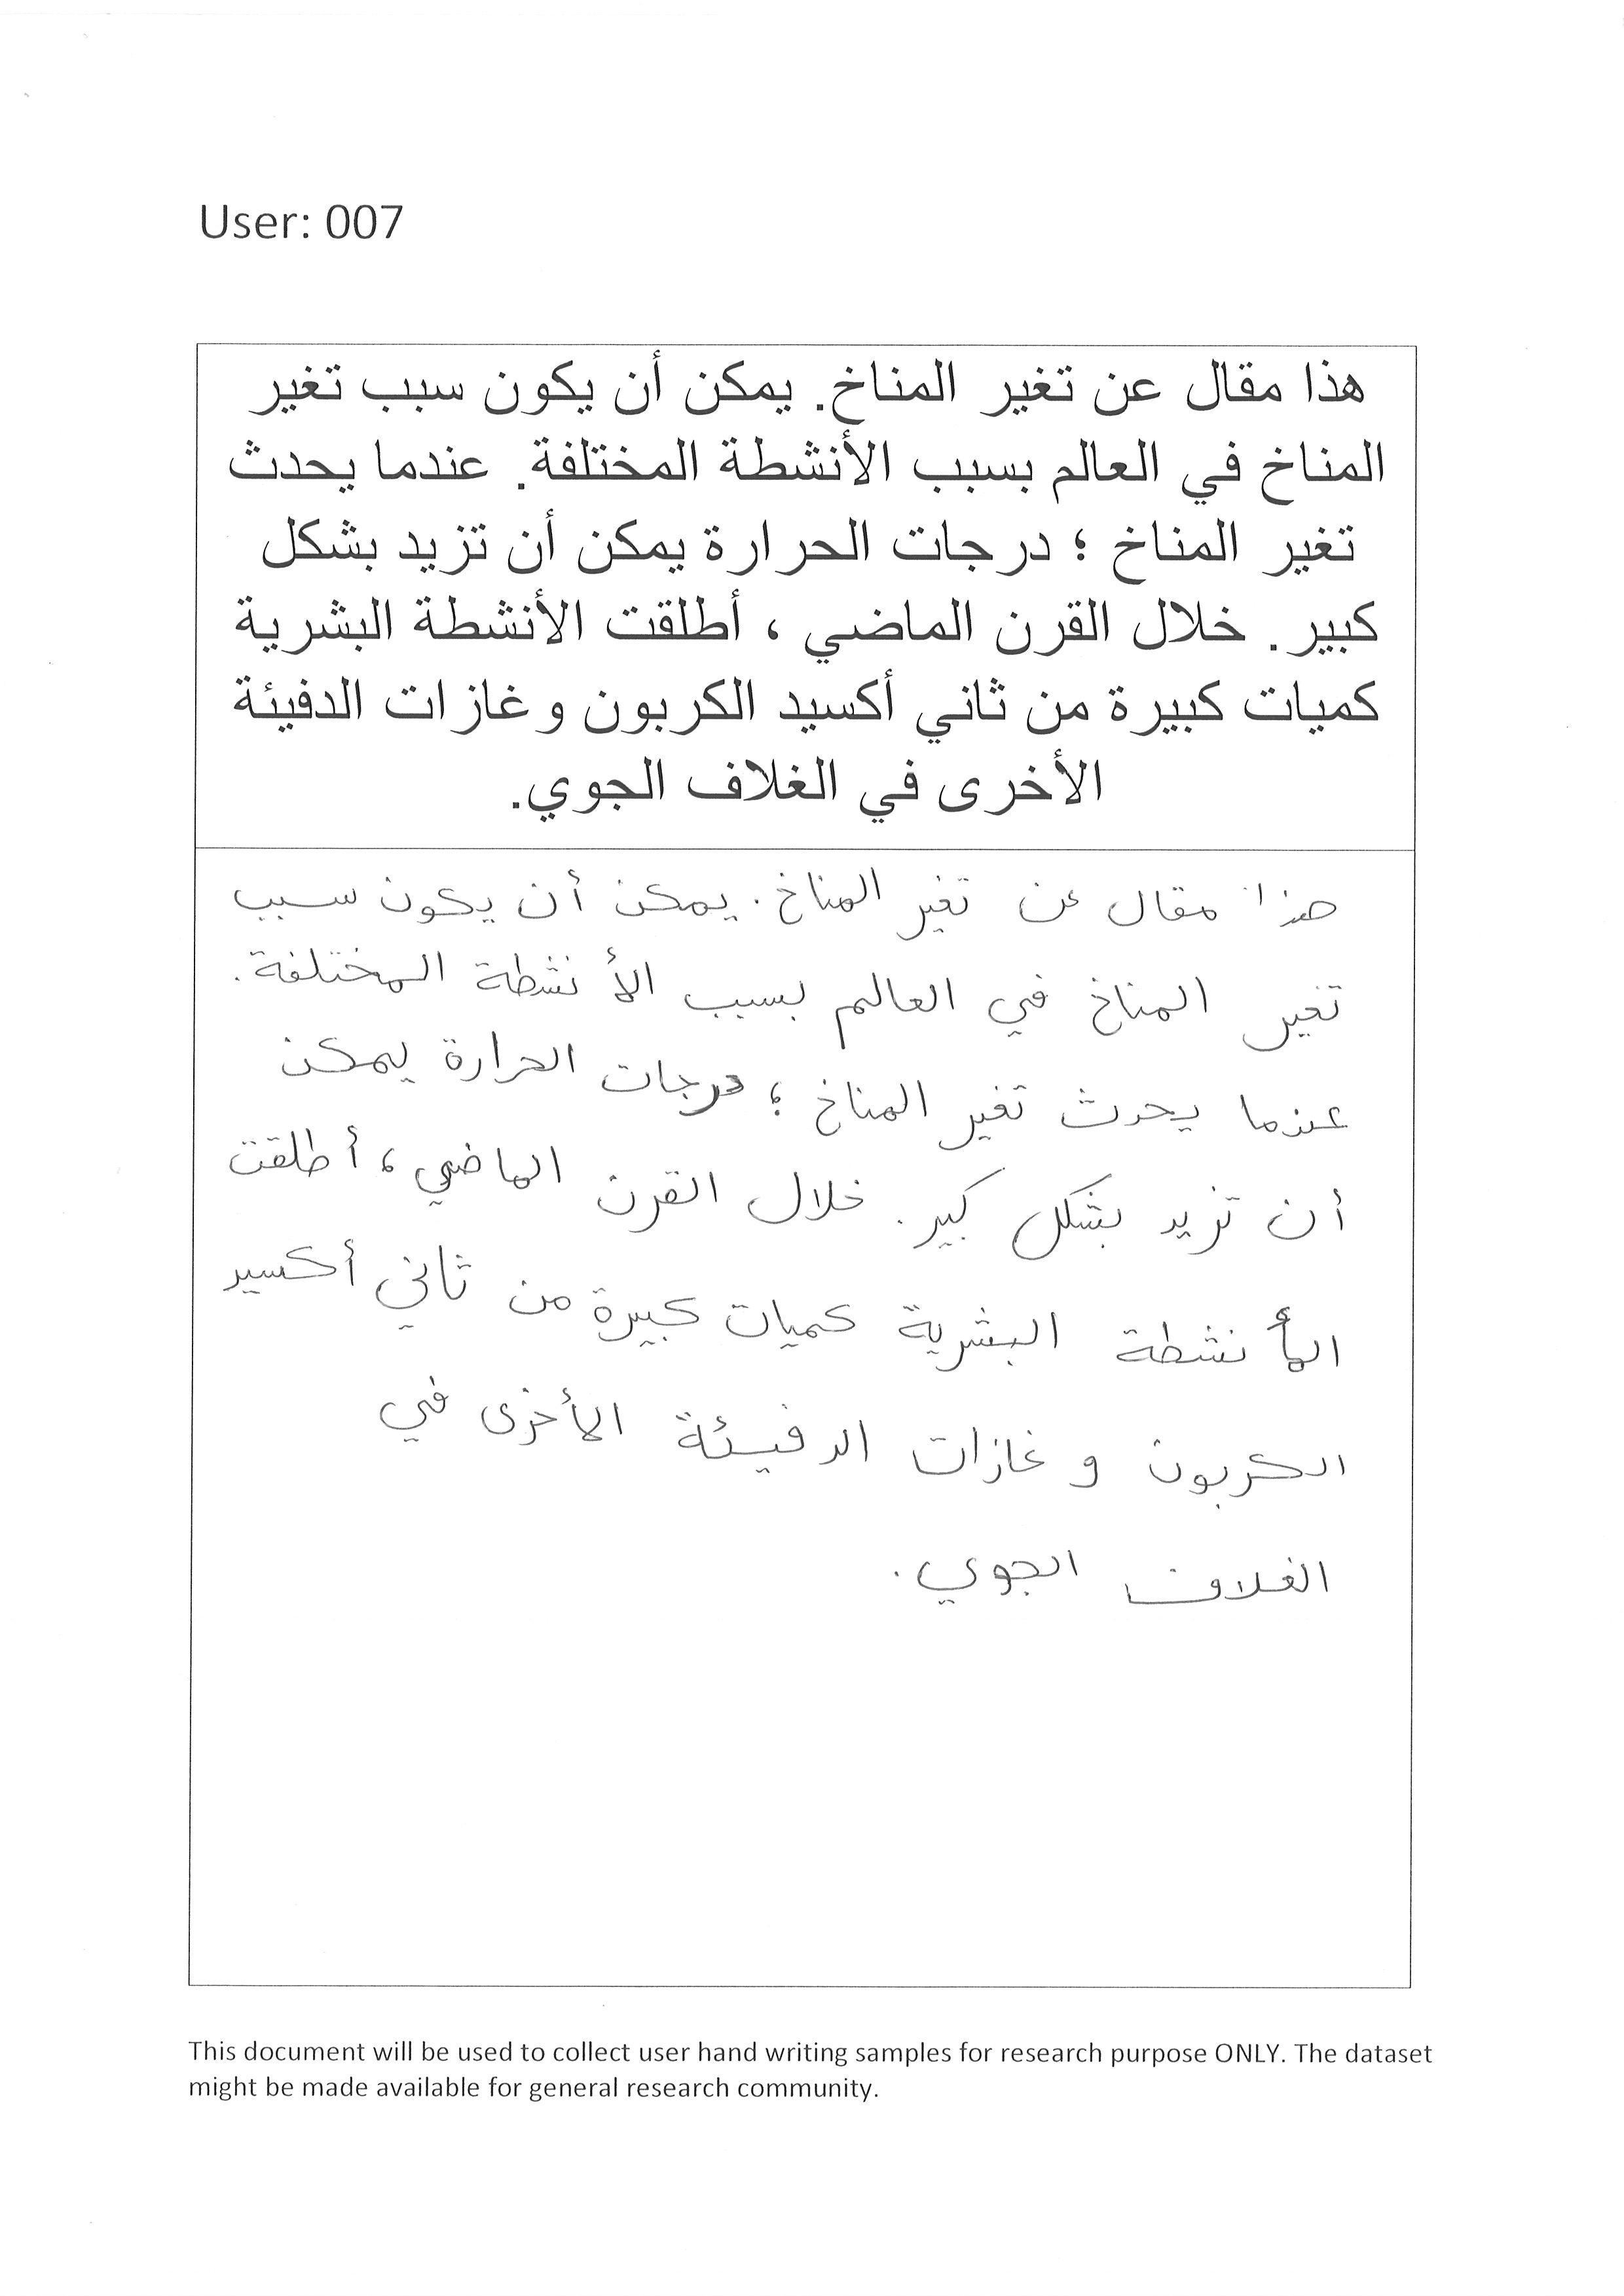 User: 007
هذا مقال عن تغير المناخ. يمكن أن يكون سبب تغير
المناخ في العالم بسبب الأنشطة المختلفة. عندما يحدث
تغير المناخ ؛ درجات الحرارة يمكن أن تزيد بشكل
كبير. خلال القرن الماضي ، أطلقت الأنشطة البشرية
كميات كبيرة من ثاني أكسيد الكربون وغازات الدفيئة
الأخرى في الغلاف الجوي.
هذا مقال عن تغير المناخ. يمكن أن يكون سبب
تغير المناخ في العالم بسبب الأنشطة المختلفة.
عندما يحدث تغير المناخ ؛ درجات الحرارة يمكن
أن تزيد بشكل كبير. خلال القرن الماضي ، أطلقت
الأنشطة البشرية كميات كبيرة من ثاني أكسيد
الكربون و غازات الدفيئة الأخرى في
الغلاف الجوي.
This document will be used to collect user hand writing samples for research purpose ONLY. The dataset
might be made available for general research community.